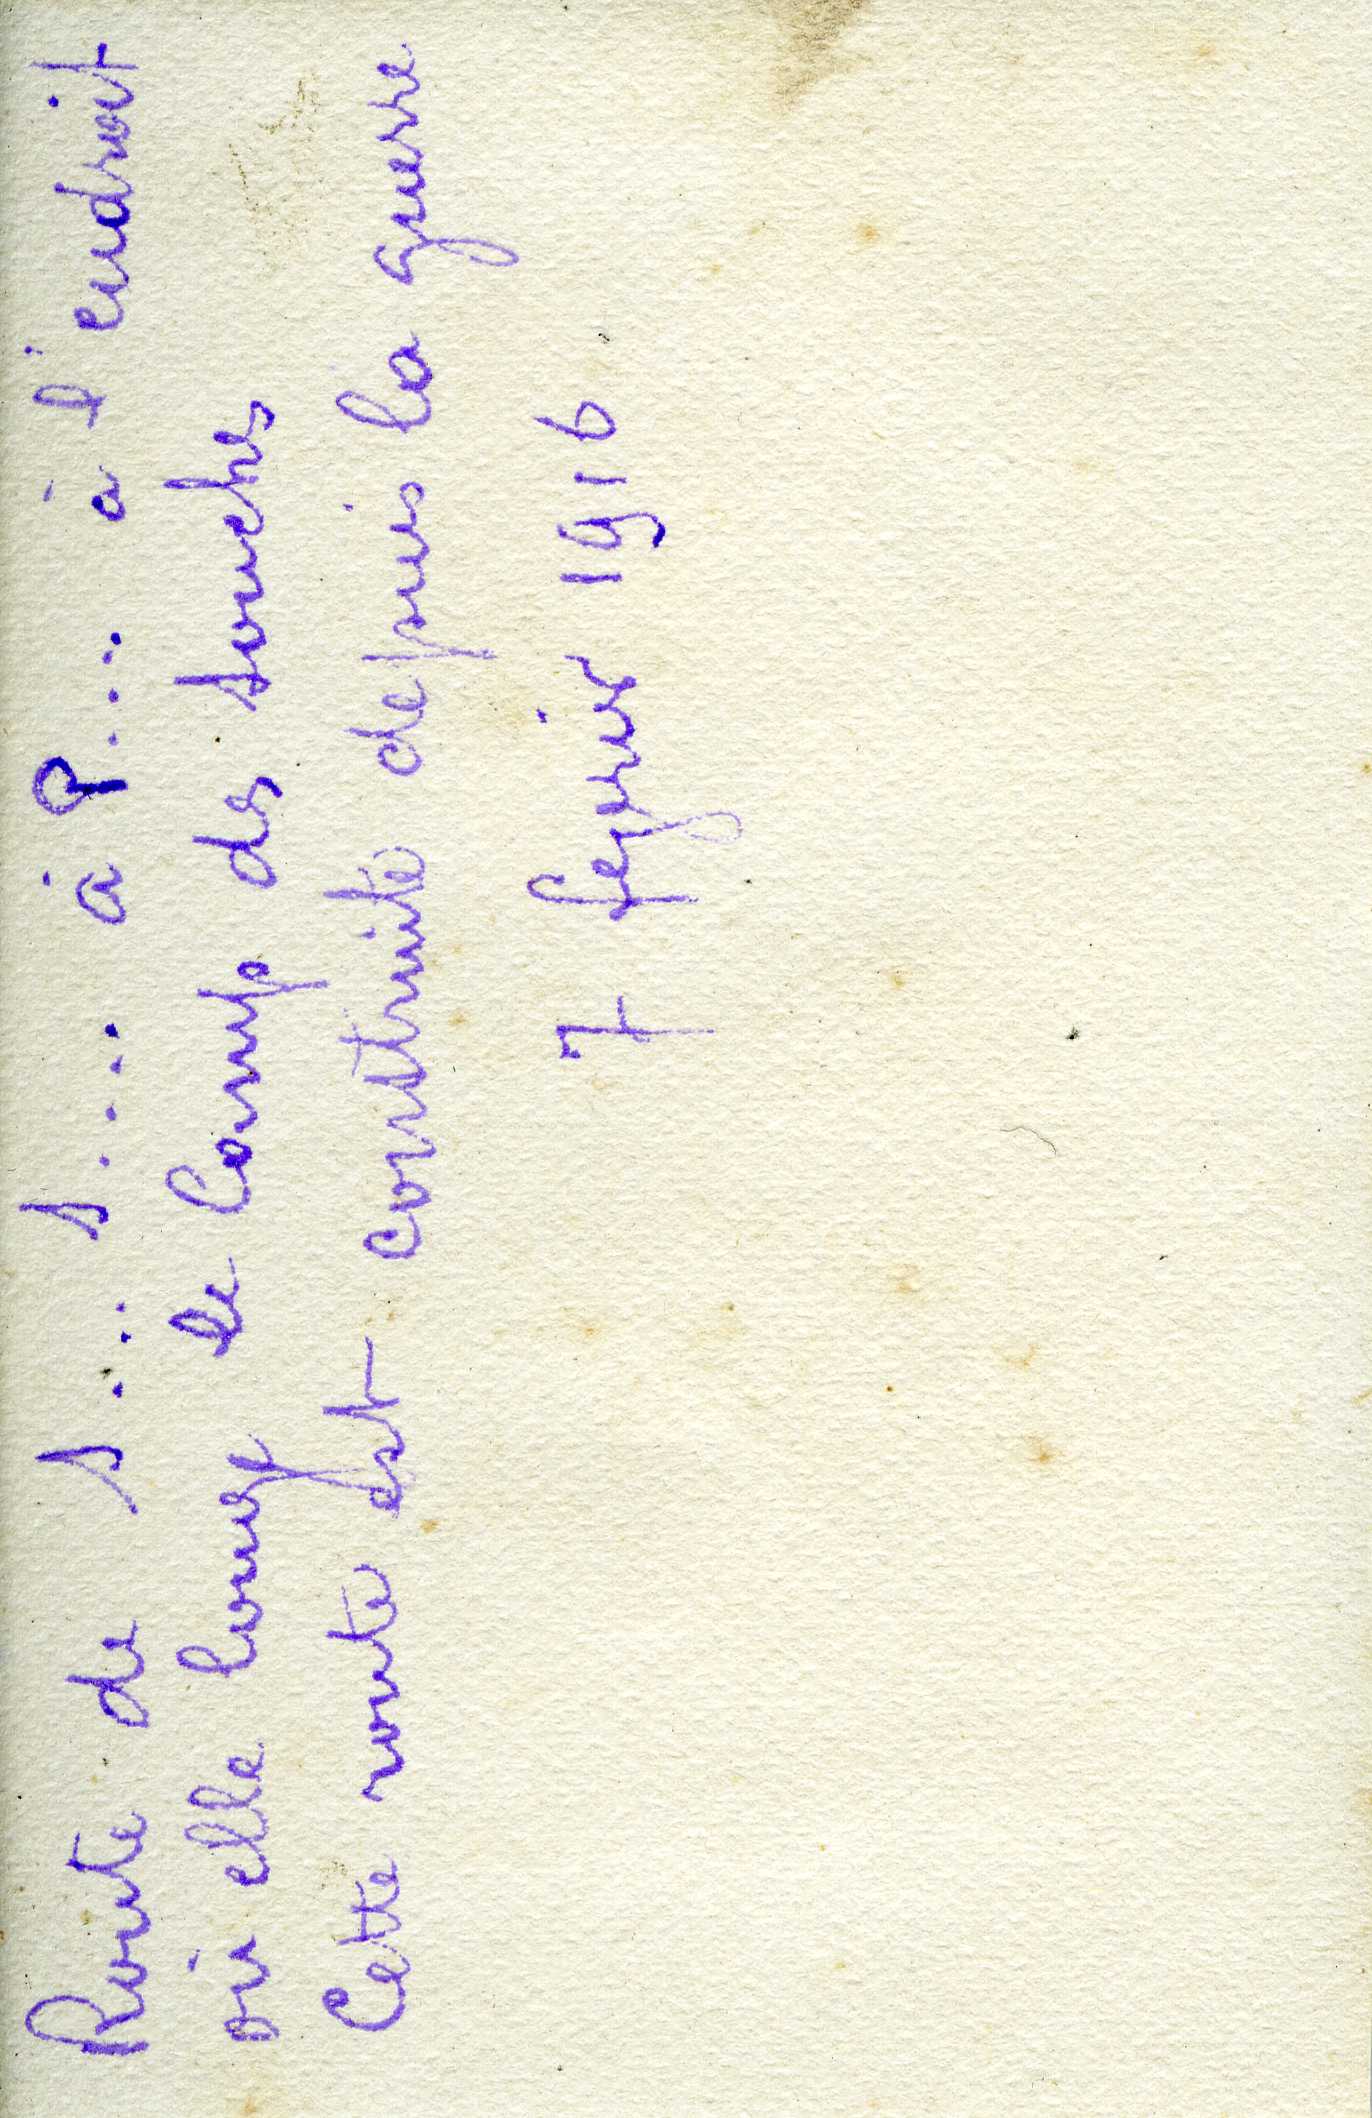 Route de S... S.... à P.... à l'endroit
où elle longe le Camp des Souches
Cette route est construite depuis la guerre
7 fevrier 1916